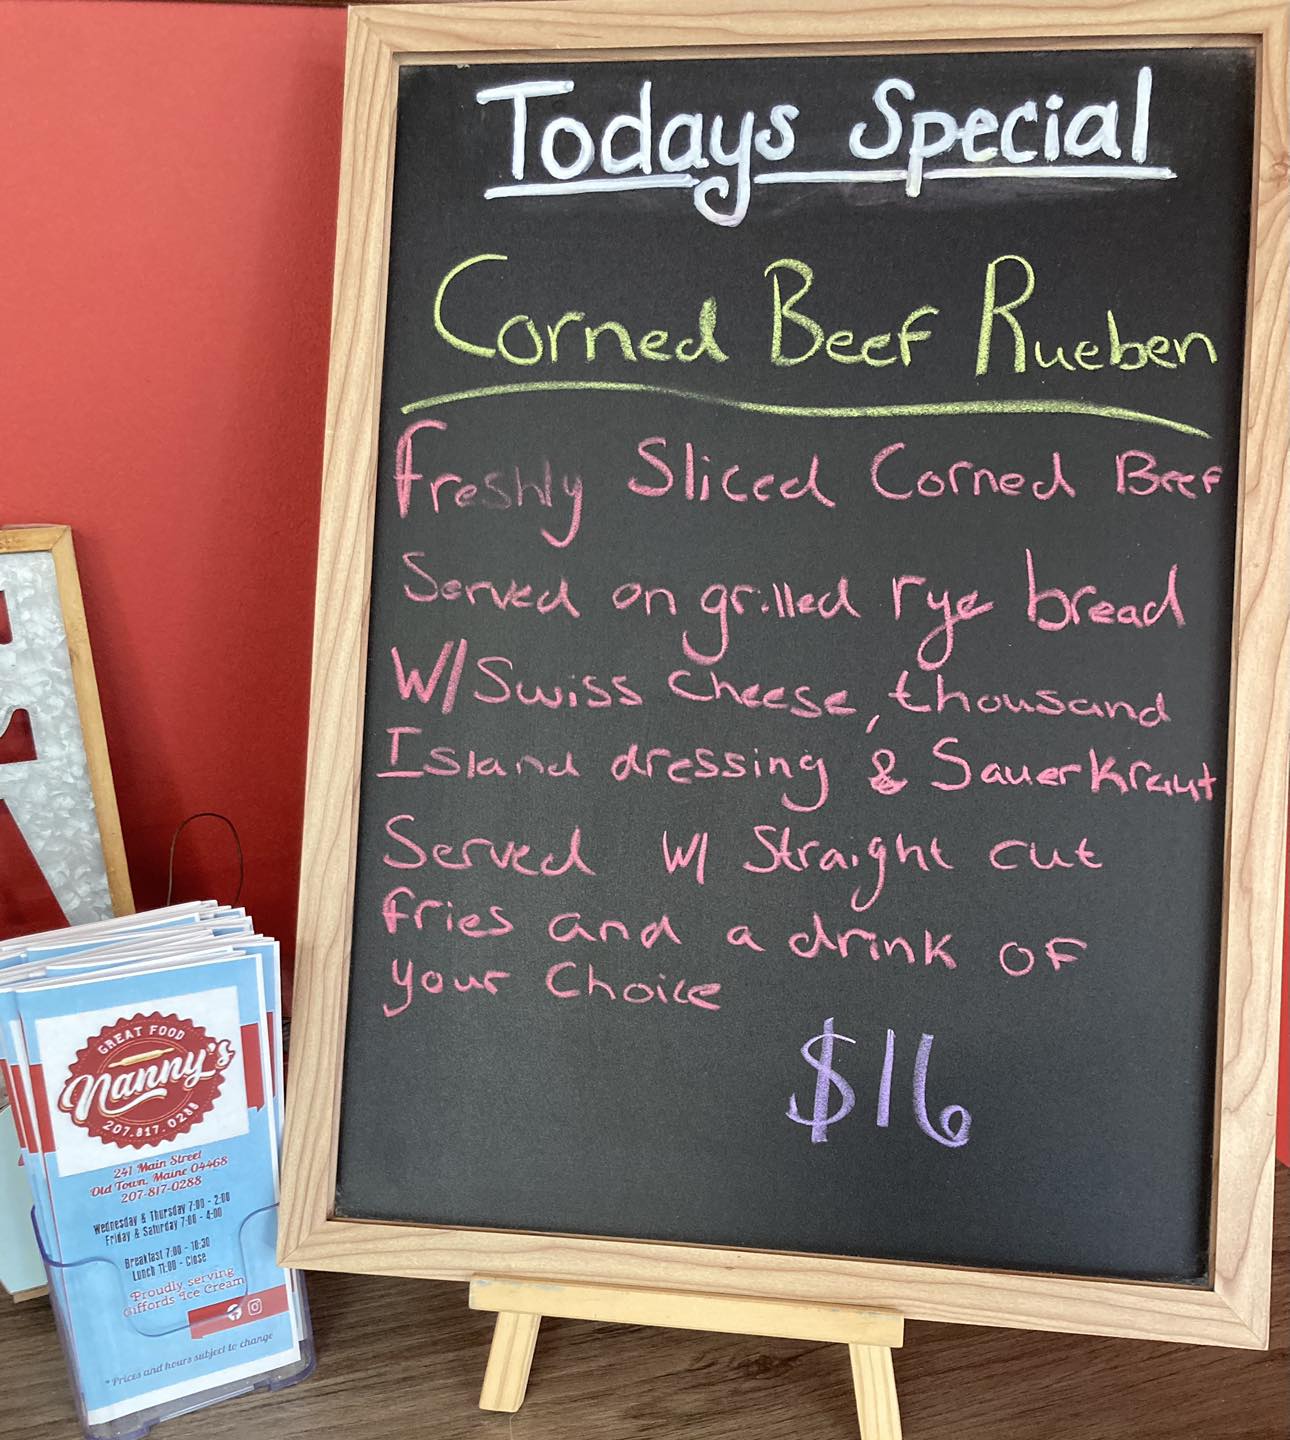 Todays Special
Corned Beef Rueben
Freshly Sliced Corned Beef
Served on grilled rye bread
W/ Swiss Cheese, thousand
Island dressing & Sauerkraut
Served W/ Straight cut
fries and a drink of
your Choice
$16
GREAT FOOD
Nanny's
207.817.0288
241 Main Street
Old Town, Maine 04468
207-817-0288
Wednesday & Thursday 7:00 - 2:00
Friday & Saturday 7:00 - 4:00
Breakfast 7:00 - 10:30
Lunch 11:00 - Close
Proudly serving
Giffords Ice Cream
*Prices and hours subject to change